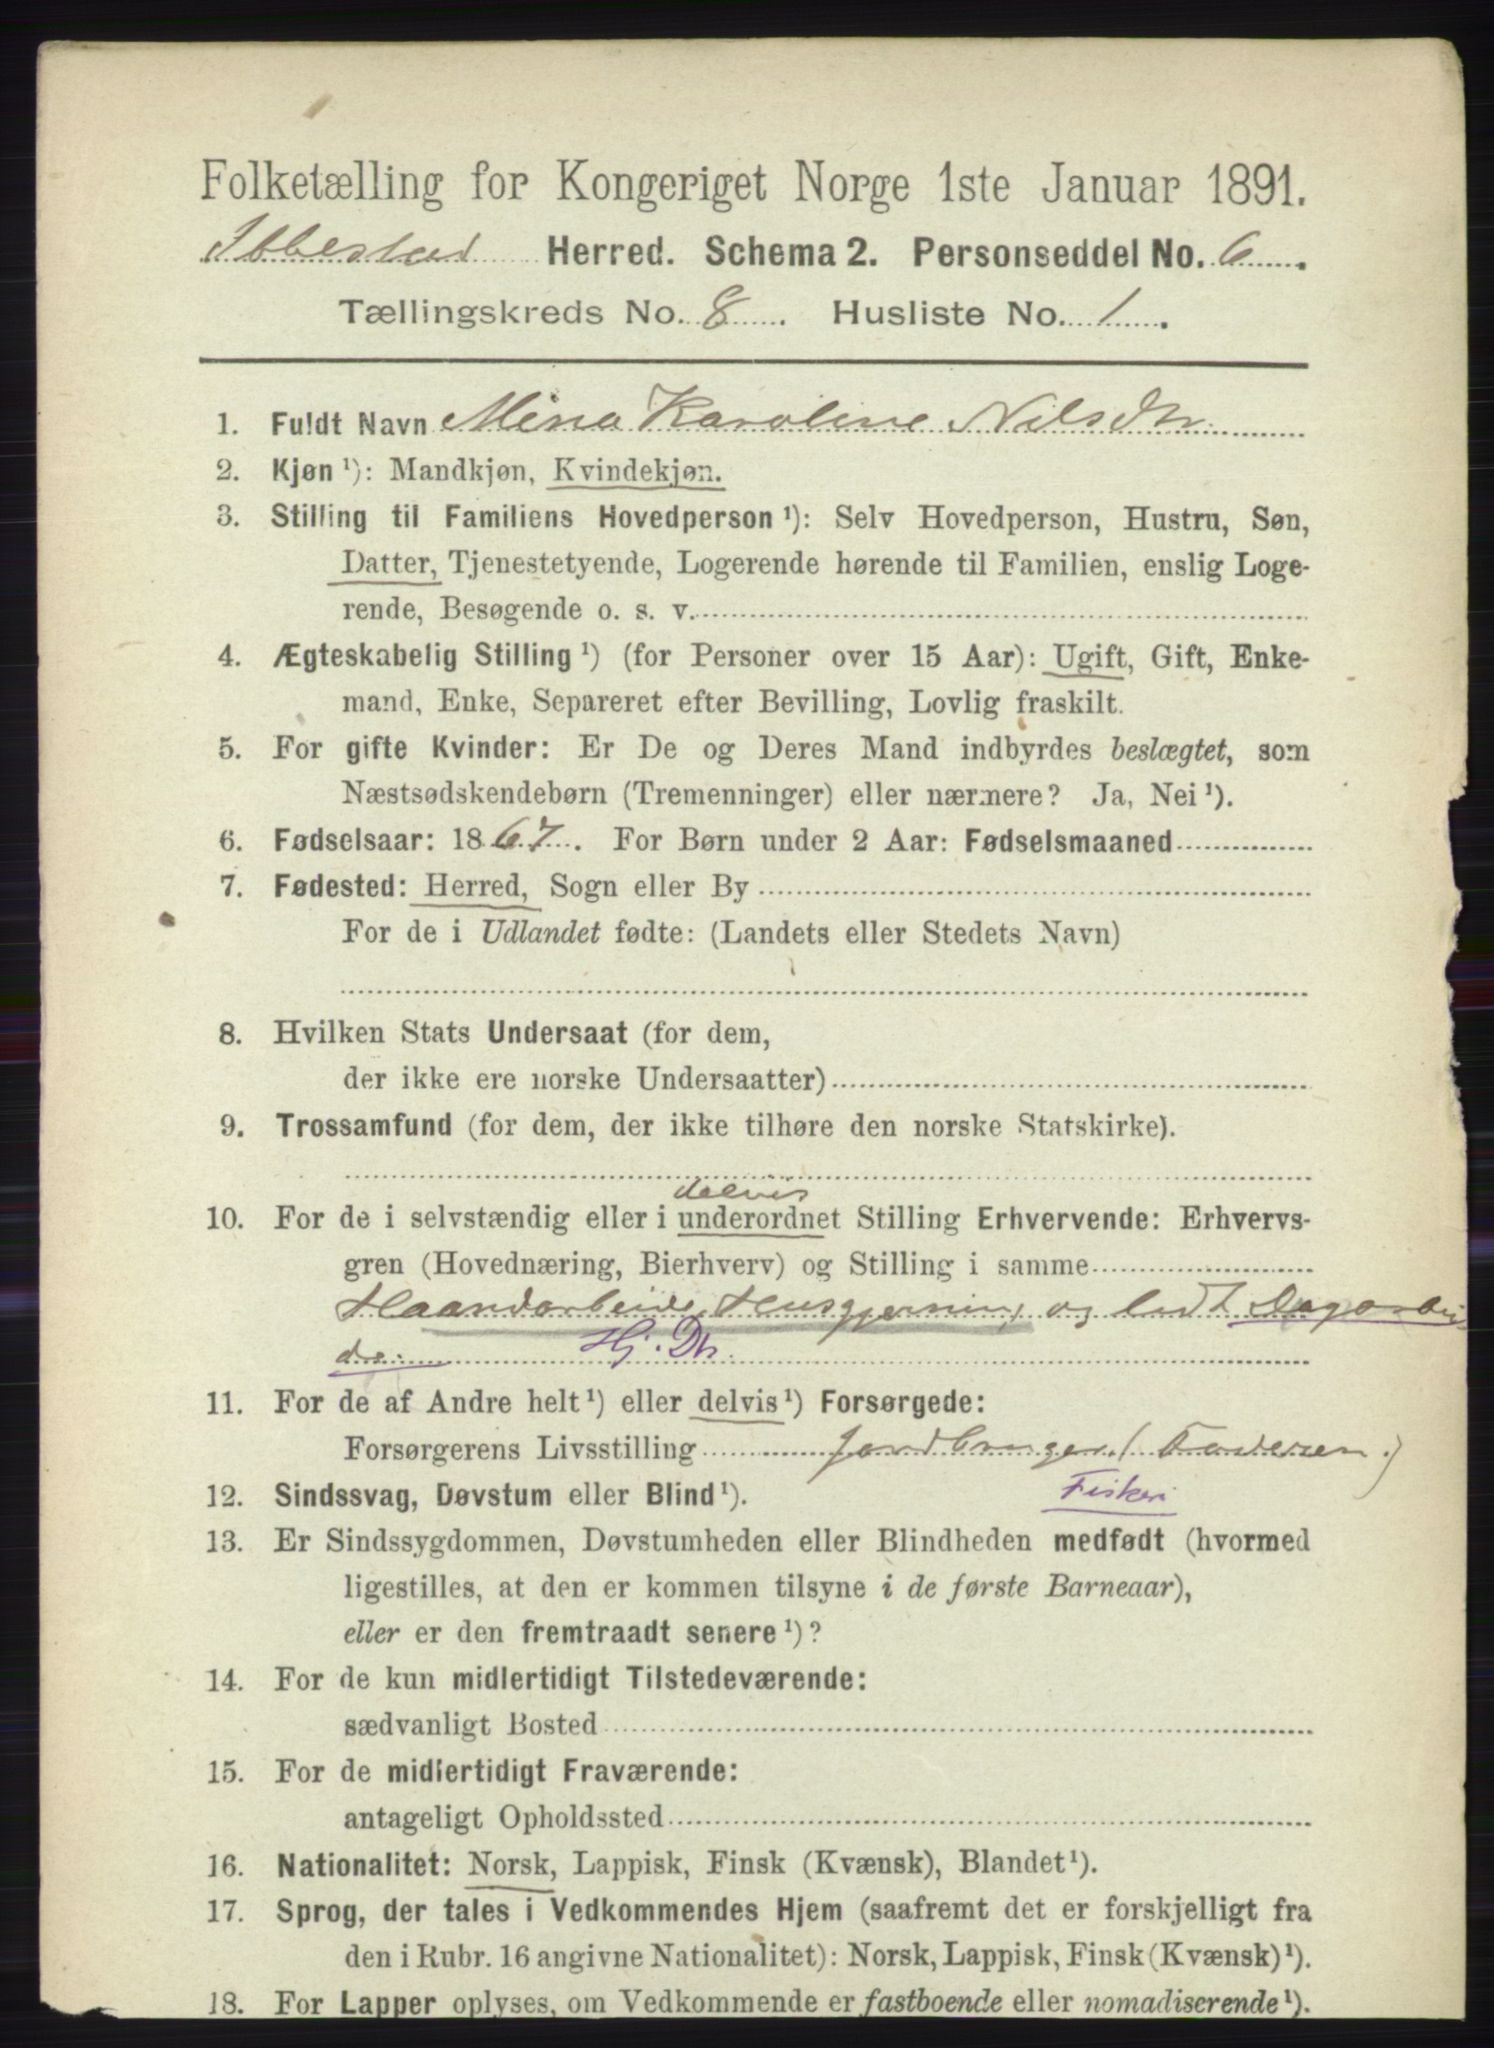 Folketælling for Kongeriget Norge 1ste Januar 1891.
Ibbestad Herred. Schema 2. Personseddel No. 6.
Tællingskreds No. 8. Husliste No. 1.
1. Fuldt Navn Mina Karoline Nilsdtr.
2. Kjøn ¹): Mandkjøn, Kvindekjøn.
3. Stilling til Familiens Hovedperson ¹): Selv Hovedperson, Hustru, Søn,
Datter, Tjenestetyende, Logerende hørende til Familien, enslig Loge-
rende, Besøgende o. s. v.
4. Ægteskabelig Stilling ¹) (for Personer over 15 Aar): Ugift, Gift, Enke-
mand, Enke, Separeret efter Bevilling, Lovlig fraskilt.
5. For gifte Kvinder: Er De og Deres Mand indbyrdes beslægtet, som
Næstsødskendebørn (Tremenninger) eller nærmere? Ja, Nei ¹).
6. Fødselsaar: 1867. For Børn under 2 Aar: Fødselsmaaned
7. Fødested: Herred, Sogn eller By
For de i Udlandet fødte: (Landets eller Stedets Navn)
8. Hvilken Stats Undersaat (for dem,
der ikke ere norske Undersaatter)
9. Trossamfund (for dem, der ikke tilhøre den norske Statskirke).
delvis
10. For de i selvstændig eller i underordnet Stilling Erhvervende: Erhvervs-
gren (Hovednæring, Bierhverv) og Stilling i samme
Haandarbeide, Husgjerning og lidt Dagarbei
de. Hj. Dtr.
11. For de af Andre helt ¹) eller delvis ¹) Forsørgede:
Forsørgerens Livsstilling Jordbruger (Faderen.)
Fiskeri
12. Sindssvag, Døvstum eller Blind ¹).
13. Er Sindssygdommen, Døvstumheden eller Blindheden medfødt (hvormed
ligestilles, at den er kommen tilsyne i de første Barneaar),
eller er den fremtraadt senere ¹)?
14. For de kun midlertidigt Tilstedeværende:
sædvanligt Bosted
15. For de midlertidigt Fraværende:
antageligt Opholdssted
16. Nationalitet: Norsk, Lappisk, Finsk (Kvænsk), Blandet ¹).
17. Sprog, der tales i Vedkommendes Hjem (saafremt det er forskjelligt fra
den i Rubr. 16 angivne Nationalitet): Norsk, Lappisk, Finsk (Kvænsk) ¹).
18. For Lapper oplyses, om Vedkommende er fastboende eller nomadiserende ¹).